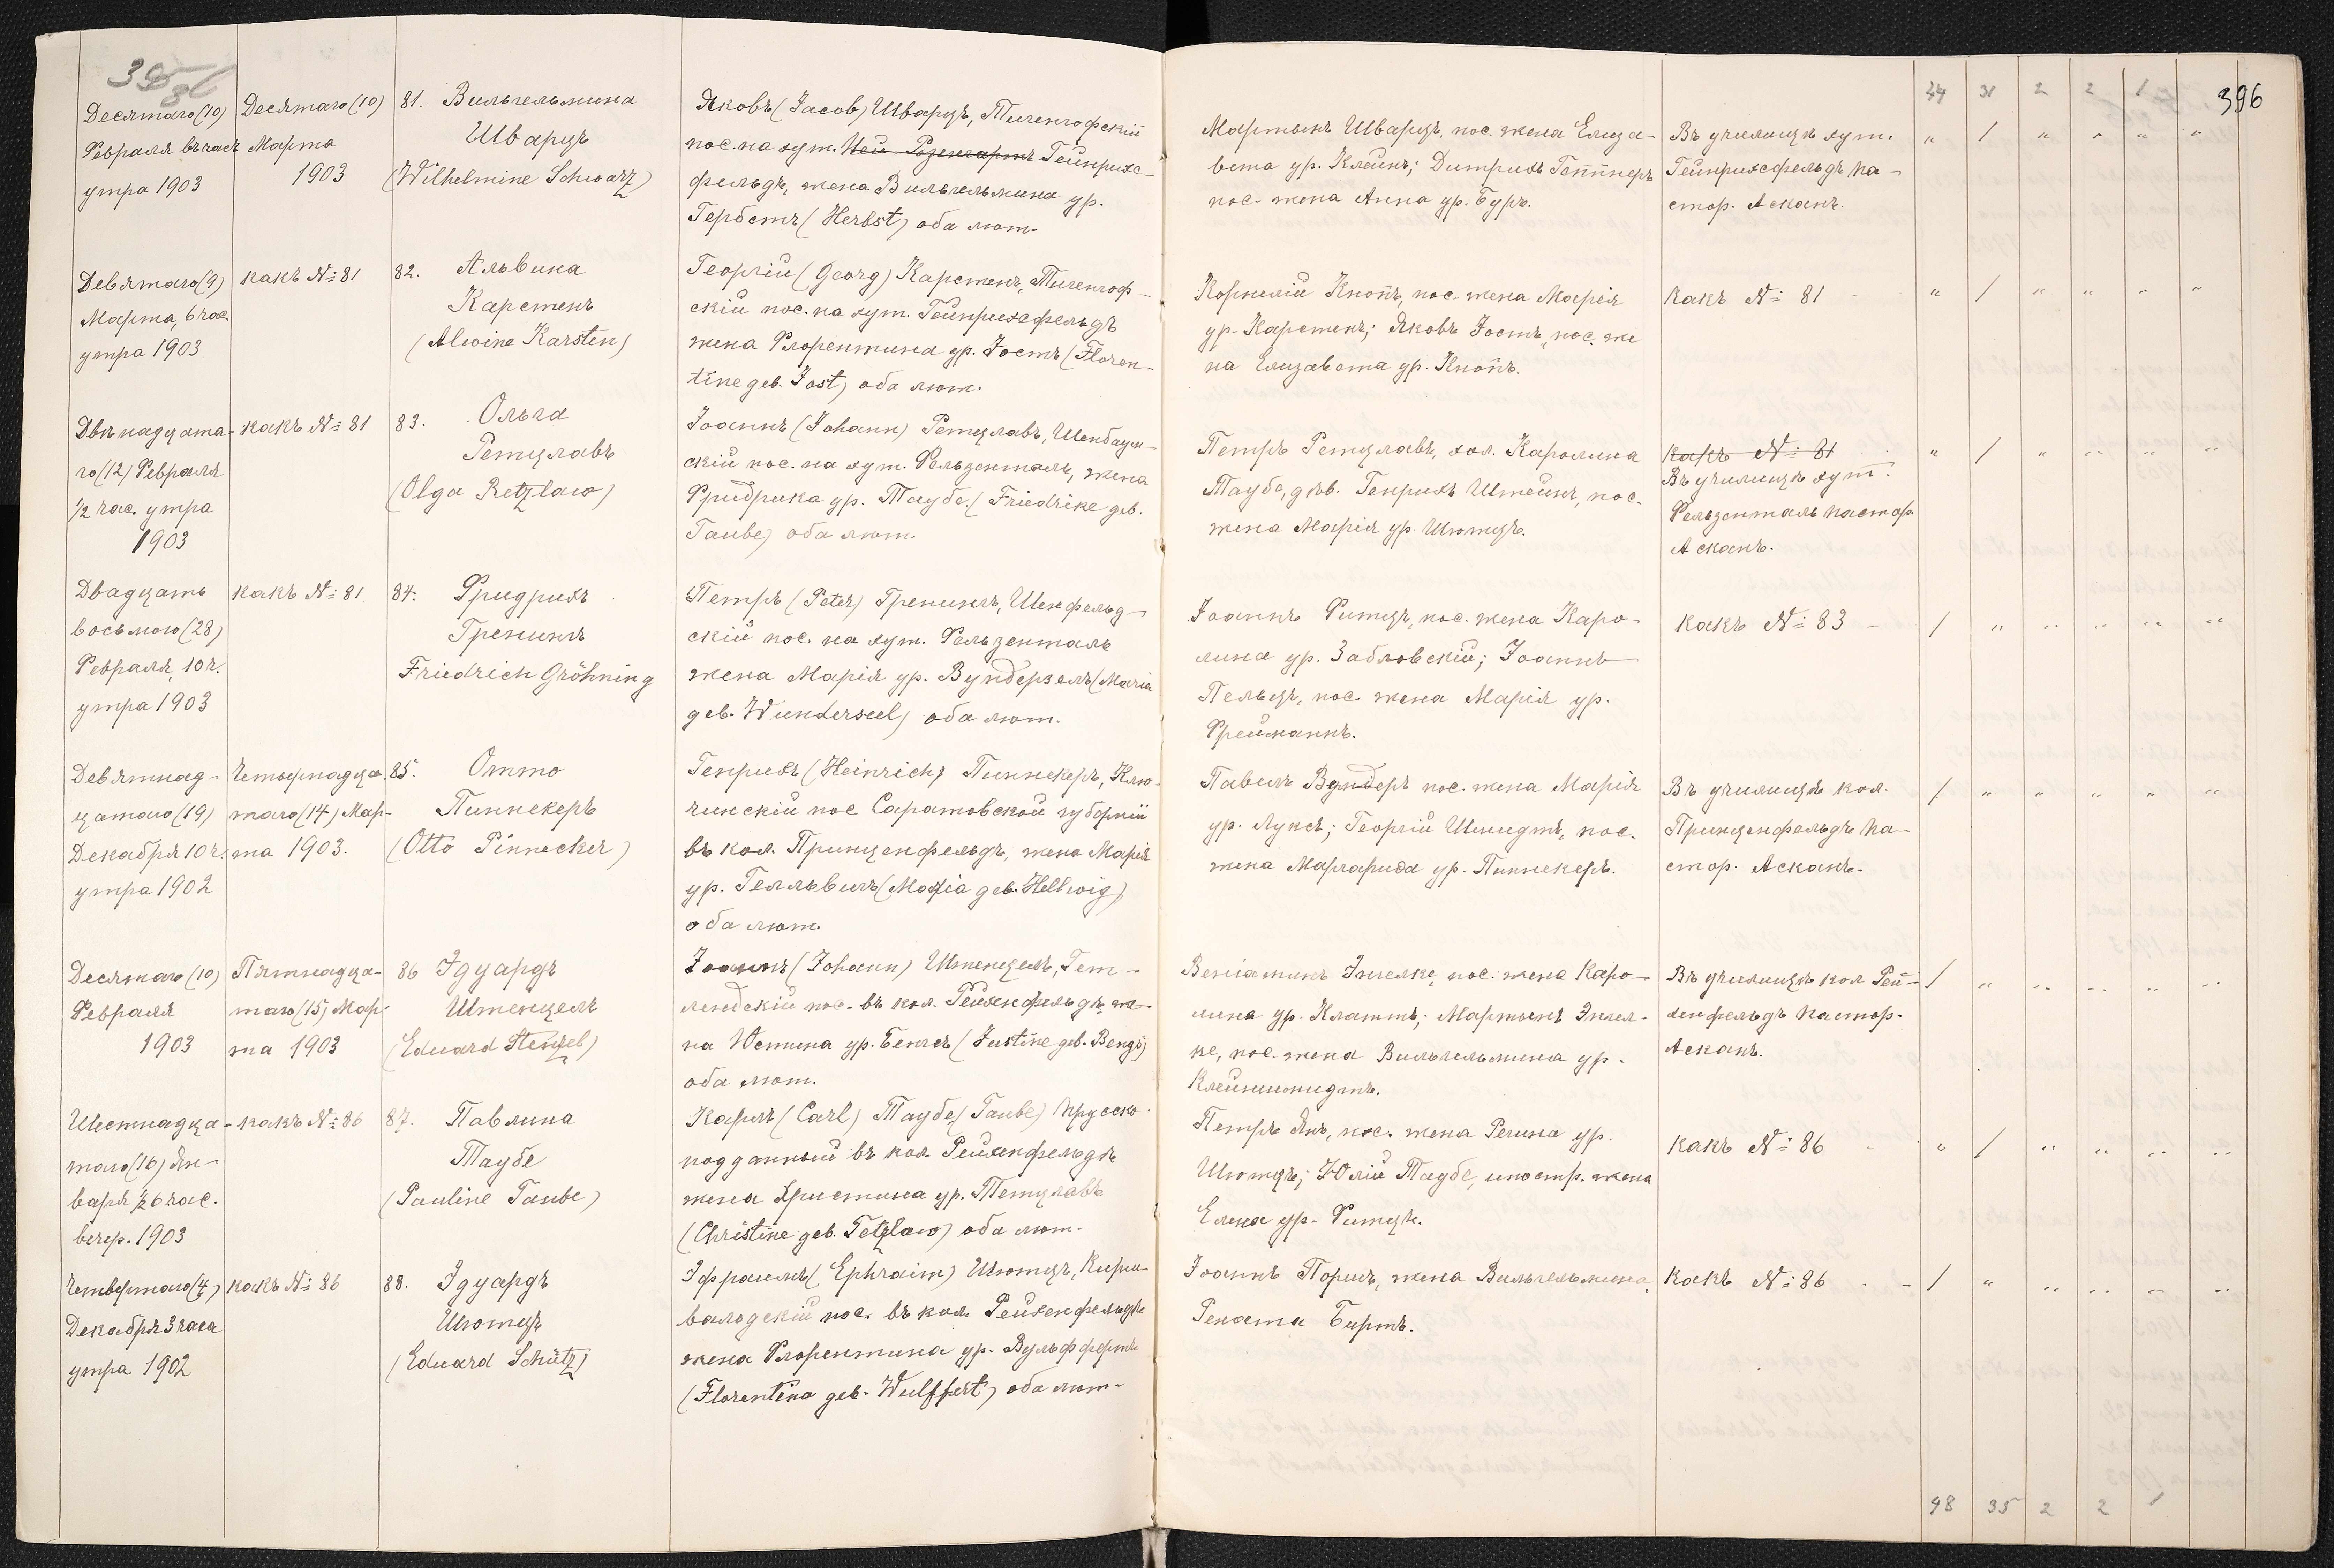 396
44 31 2 2 1
Десятаго (10)
Февраля въ час
утра 1903
Десятаго (10)
Марта
1903
81. Вильгельмина
Шварцъ
(Wilhelmine Schwarz)
Яковъ (Jacob) Шварцъ, Тигенгофскій
пос. на хут. Ней-Розенгартъ Гейнрихс-
фельдъ, жена Вильгельмина ур.
Гербстъ (Herbst) оба лют.
Мартынъ Шварцъ, пос. жена Елиза-
вета ур. Клейнъ; Дитрихъ Геппнеръ
пос. жена Анна ур. Буръ.
Въ училищѣ хут.
Гейнрихсфельдъ па-
стор. Асканъ.
" 1 " " " "
Девятаго (9)
Марта, 6 час.
утра 1903
какъ №: 81
82. Альвина
Карстенъ
(Alwine Karsten)
Георгій (Georg) Карстенъ, Тигенгоф-
скій пос. на хут. Гейнрихсфельдъ
жена Флорентина ур. Іостъ (Floren-
tine geb. Jost) оба лют.
Корнелій Кнопъ, пос. жена Марія
ур. Карстенъ; Яковъ Іостъ, пос. же
на Елизавета ур. Кнопъ.
какъ №: 81
" 1 " " " "
Двѣнадцата-
го (12) Февраля
1/2 час. утра
1903
какъ №: 81
83. Ольга
Ретцлавъ
(Olga Retzlaw)
Іоаннъ (Johann) Ретцлавъ, Шенбаум-
скій пос. на хут. Фельзенталь, жена
Фридрика ур. Таубе (Friedrike geb.
Taube) оба лют.
Петръ Ретцлавъ, хол. Каролина
Таубе, дѣв. Генрихъ Штейнъ, пос.
жена Марія ур. Шютцъ.
какъ №: 81
Въ училищѣ хут.
Фельзенталь пастор.
Асканъ.
" 1 " " " "
Двадцать
восьмого (28)
Февраля, 10 ч.
утра 1903
какъ №: 81
84. Фридрихъ
Гренингъ
Friedrich Gröhning
Петръ (Peter) Гренингъ, Шенфельд-
скій пос. на хут. Фельзенталь
жена Марія ур. Вундерзелъ (Maria
geb. Wunderseel) оба лют.
Іоаннъ Фитцъ, пос. жена Каро-
лина ур. Забловскій; Іоаннъ
Пельцъ, пос. жена Марія ур.
Фрейманнъ.
какъ №: 83
1 " " " " "
Девятнад-
цатаго (19)
Декабря 10 ч.
утра 1902
Четырнадца
таго (14) Мар-
та 1903.
85. Отто
Пиннекеръ
(Otto Pinnecker)
Генрихъ (Heinrich) Пиннекеръ, Клю-
чинскій пос. Саратовской губерніи
въ кол. Принценфельдъ, жена Марія
ур. Геллвигъ (Maria geb. Hellwig)
оба лют.
Павелъ Вундеръ пос. жена Марія
ур. Луксъ; Георгій Шмидтъ, пос.
жена Маргарида ур. Пиннекеръ.
Въ училищѣ кол.
Принценфельдъ па-
стор. Асканъ.
1 " " " " "
Десятаго (10)
Февраля
1903
Пятнадца-
таго (15) Мар-
та 1903
86 Эдуардъ
Штенцелъ
(Eduard Stenzel)
Іоаннъ (Johann) Штенцелъ, Гет-
лендскій пос. въ кол. Рейхенфельдъ, же-
на Юстина ур. Бенгсъ (Justine geb. Bengs)
оба лют.
Веніаминъ Энгелке, пос. жена Каро-
лина ур. Клаттъ; Мартынъ Энгел-
ке, пос. жена Вильгельмина ур.
Клейншмидтъ.
Въ училищѣ кол Рей-
хенфельдъ пастор.
Асканъ.
1 " " " " "
Шестнадца-
таго (16) Ян-
варя 1/2 6 час.
вечер. 1903
какъ №: 86
87. Павлина
Таубе
(Pauline Taube)
Карлъ (Carl) Таубе (Taube) прусско-
подданный въ кол. Рейхенфельдъ
жена Христина ур. Тетцлавъ
(Christine geb. Tetzlaw) оба лют.
Петръ Янъ, пос. жена Регина ур.
Шютцъ; Юлій Таубе, иностр. жена
Елена ур. Фитцъ.
какъ №: 86
" 1 " " " "
Четвертаго (4)
Декабря 3 часа
утра 1902
какъ №: 86
88. Эдуардъ
Шютцъ
(Eduard Schütz)
Эфраимъ (Ephraim) Шютцъ, Кирш-
вальдскій пос. въ кол. Рейхенфельдъ
жена Флорентина ур. Вульффертъ
(Florentina geb. Wulffert) оба лют.
Іоаннъ Поршъ, жена Вильгельмина,
Рената Биртъ.
какъ №: 86
1 " " " " "
48 35 2 2 1